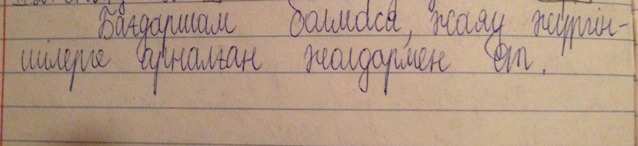 Бағдаршам болмаса, жаяу жүргін-
шілерге арналған жолдармен өт.